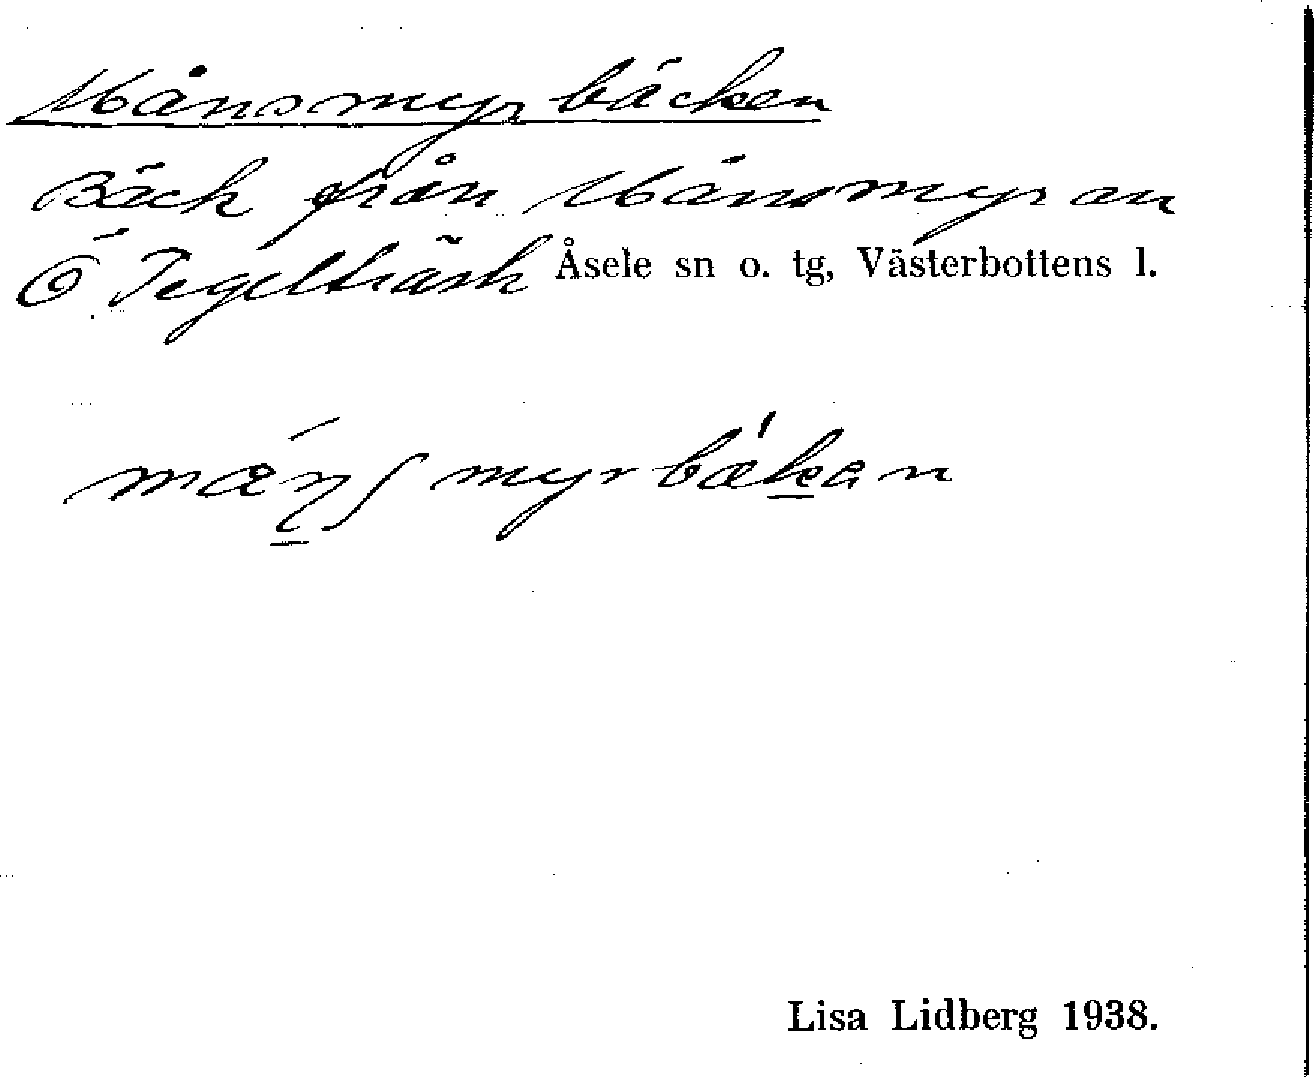 Månsmyrbäcken
Bäck från Månsmyran
Ö Tegelträsk Åsele sn o. tg, Västerbottens l.
Lisa Lidberg 1938.